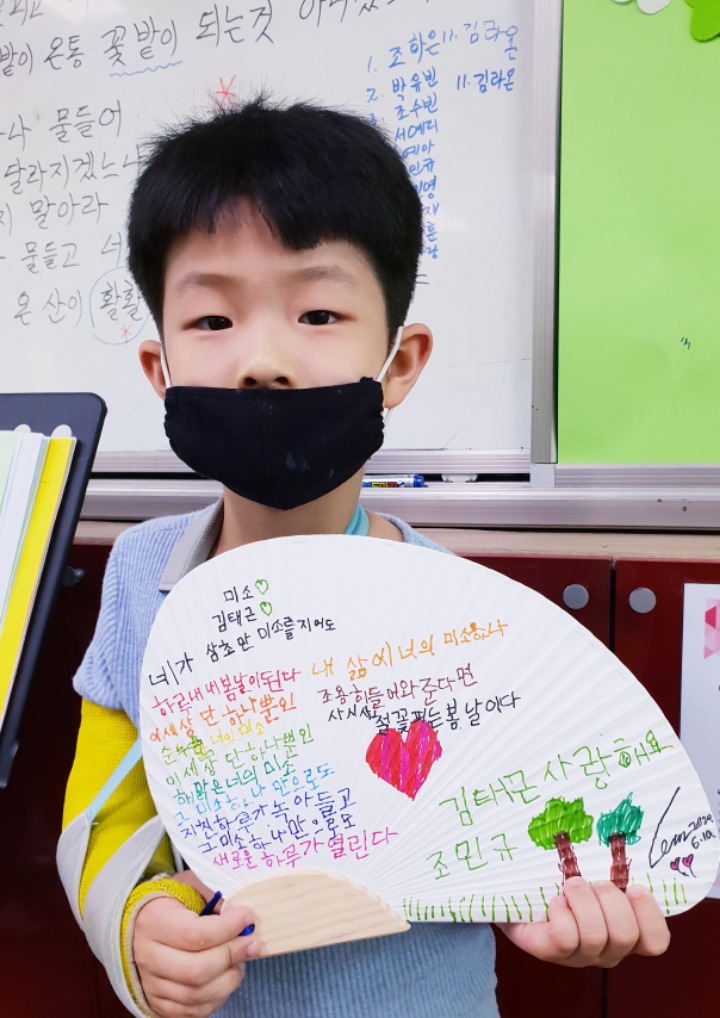 밭이 온통 꽃밭이 되는것
물들어
달라지겠느냐
말아라
물들고
온 산이 활활
1. 조하은
11. 김라온
2. 박유빈
11. 김라온
조수빈
서예리
예아
민규
미소
김태근
네가 삼초만 미소를 지어도
하루내내 봄날이 된다
이세상 단 하나뿐인
순수한 너의 미소
이 세상 단 하나뿐인
해맑은 너의 미소
그 미소 하나 만으로도
지친하루가 녹아들고
그 미소 하나 만으로도
새로운 하루가 열린다
내 삶에 너의 미소하나
조용히 들어와 준다면
사시사철 꽃피는 봄날이다
김태근 사랑해요
조민규
2020
6.10